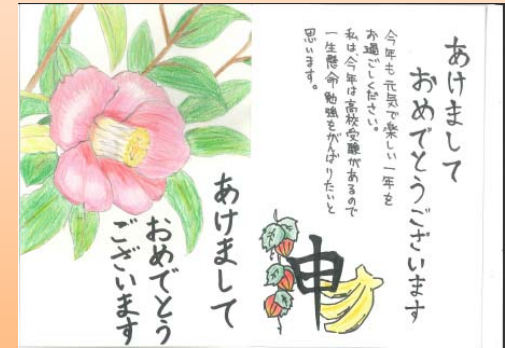 あけまして
おめでとうございます
今年も元気で楽しい一年を
お過ごしください。
私は、今年は高校受験があるので
一生懸命勉強をがんばりたいと
思います。
申
あけまして
おめでとう
ございます